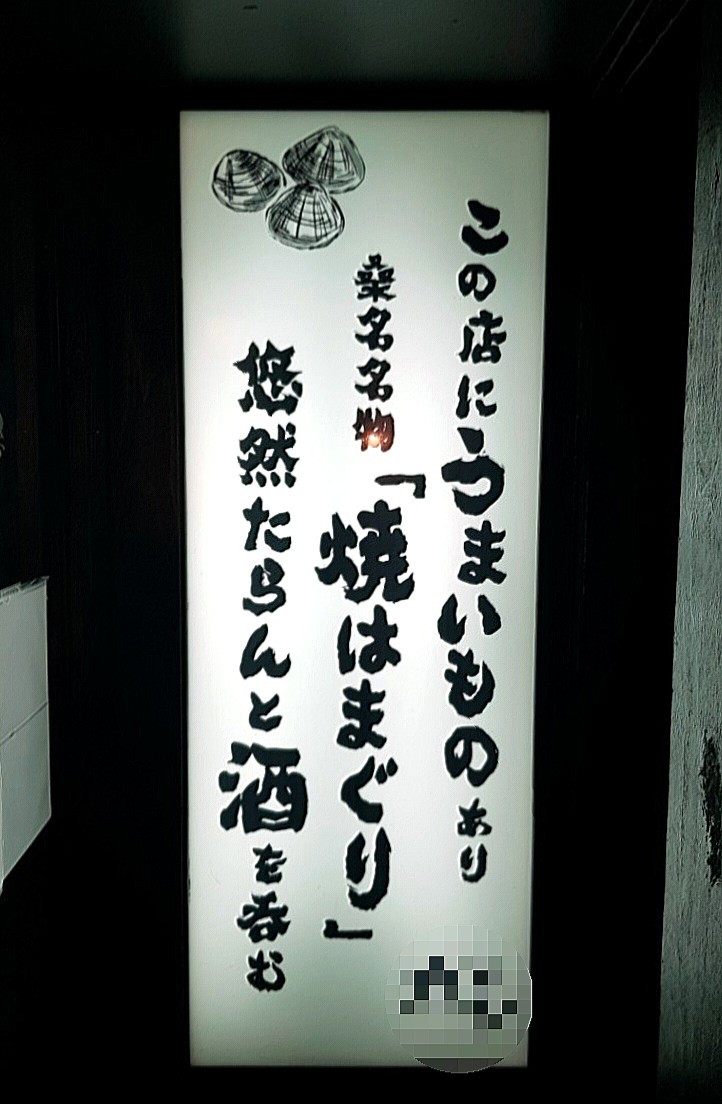 この店にうまいものあり
桑名名物「焼はまぐり」
悠然たらんと酒を呑む